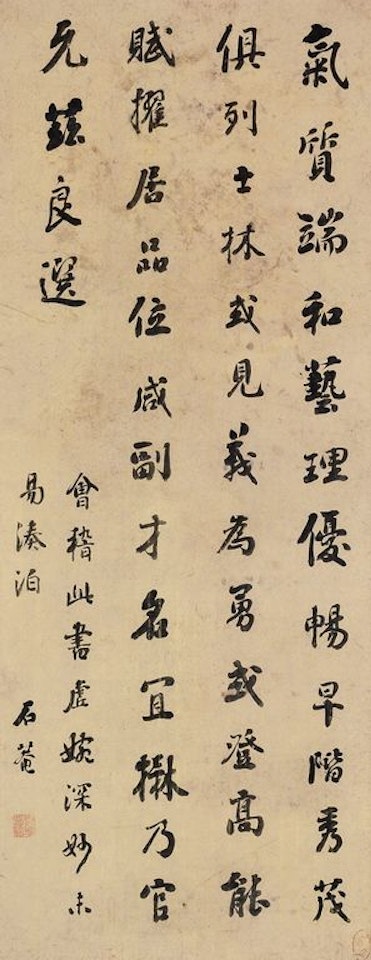 氣質端和藝理優暢早階秀茂
俱列士林或見義為勇或登高能
賦擢居品位咸副才名宜楙乃官
允茲良選
會稽此書虛婉深妙未
易湊泊
石菴